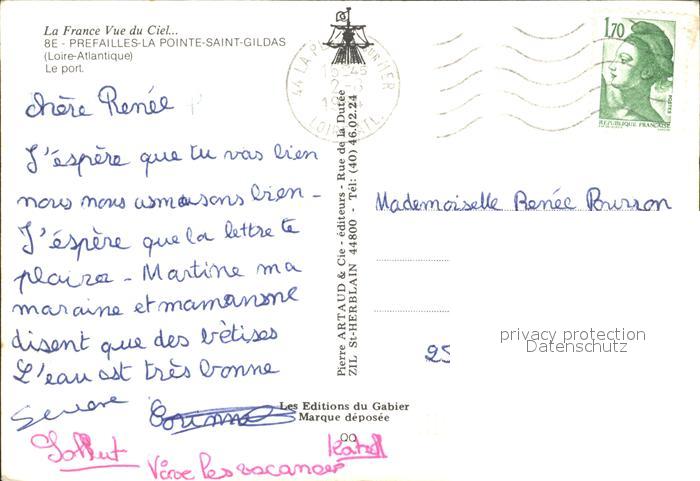 La France Vue du Ciel...
8E - PREFAILLES-LA POINTE-SAINT-GILDAS
(Loire-Atlantique)
Le port.
chère Renée
J'éspère que tu vas bien
nous nous
bien -
J'éspère que la lettre te
plaira - Martine ma
maraine et
disent que des bêtises
L'eau est très bonne
Corinne
Vive les vacances
Pierre ARTAUD & Cie - éditeurs - Rue de la Dutée
ZIL St-HERBLAIN 44800 - Tél: (40) 46.02.24
Les Editions du Gabier
Marque déposée
1,70
POSTES
REPUBLIQUE FRANÇAISE
Mademoiselle Renée
25
privacy protection
Datenschutz